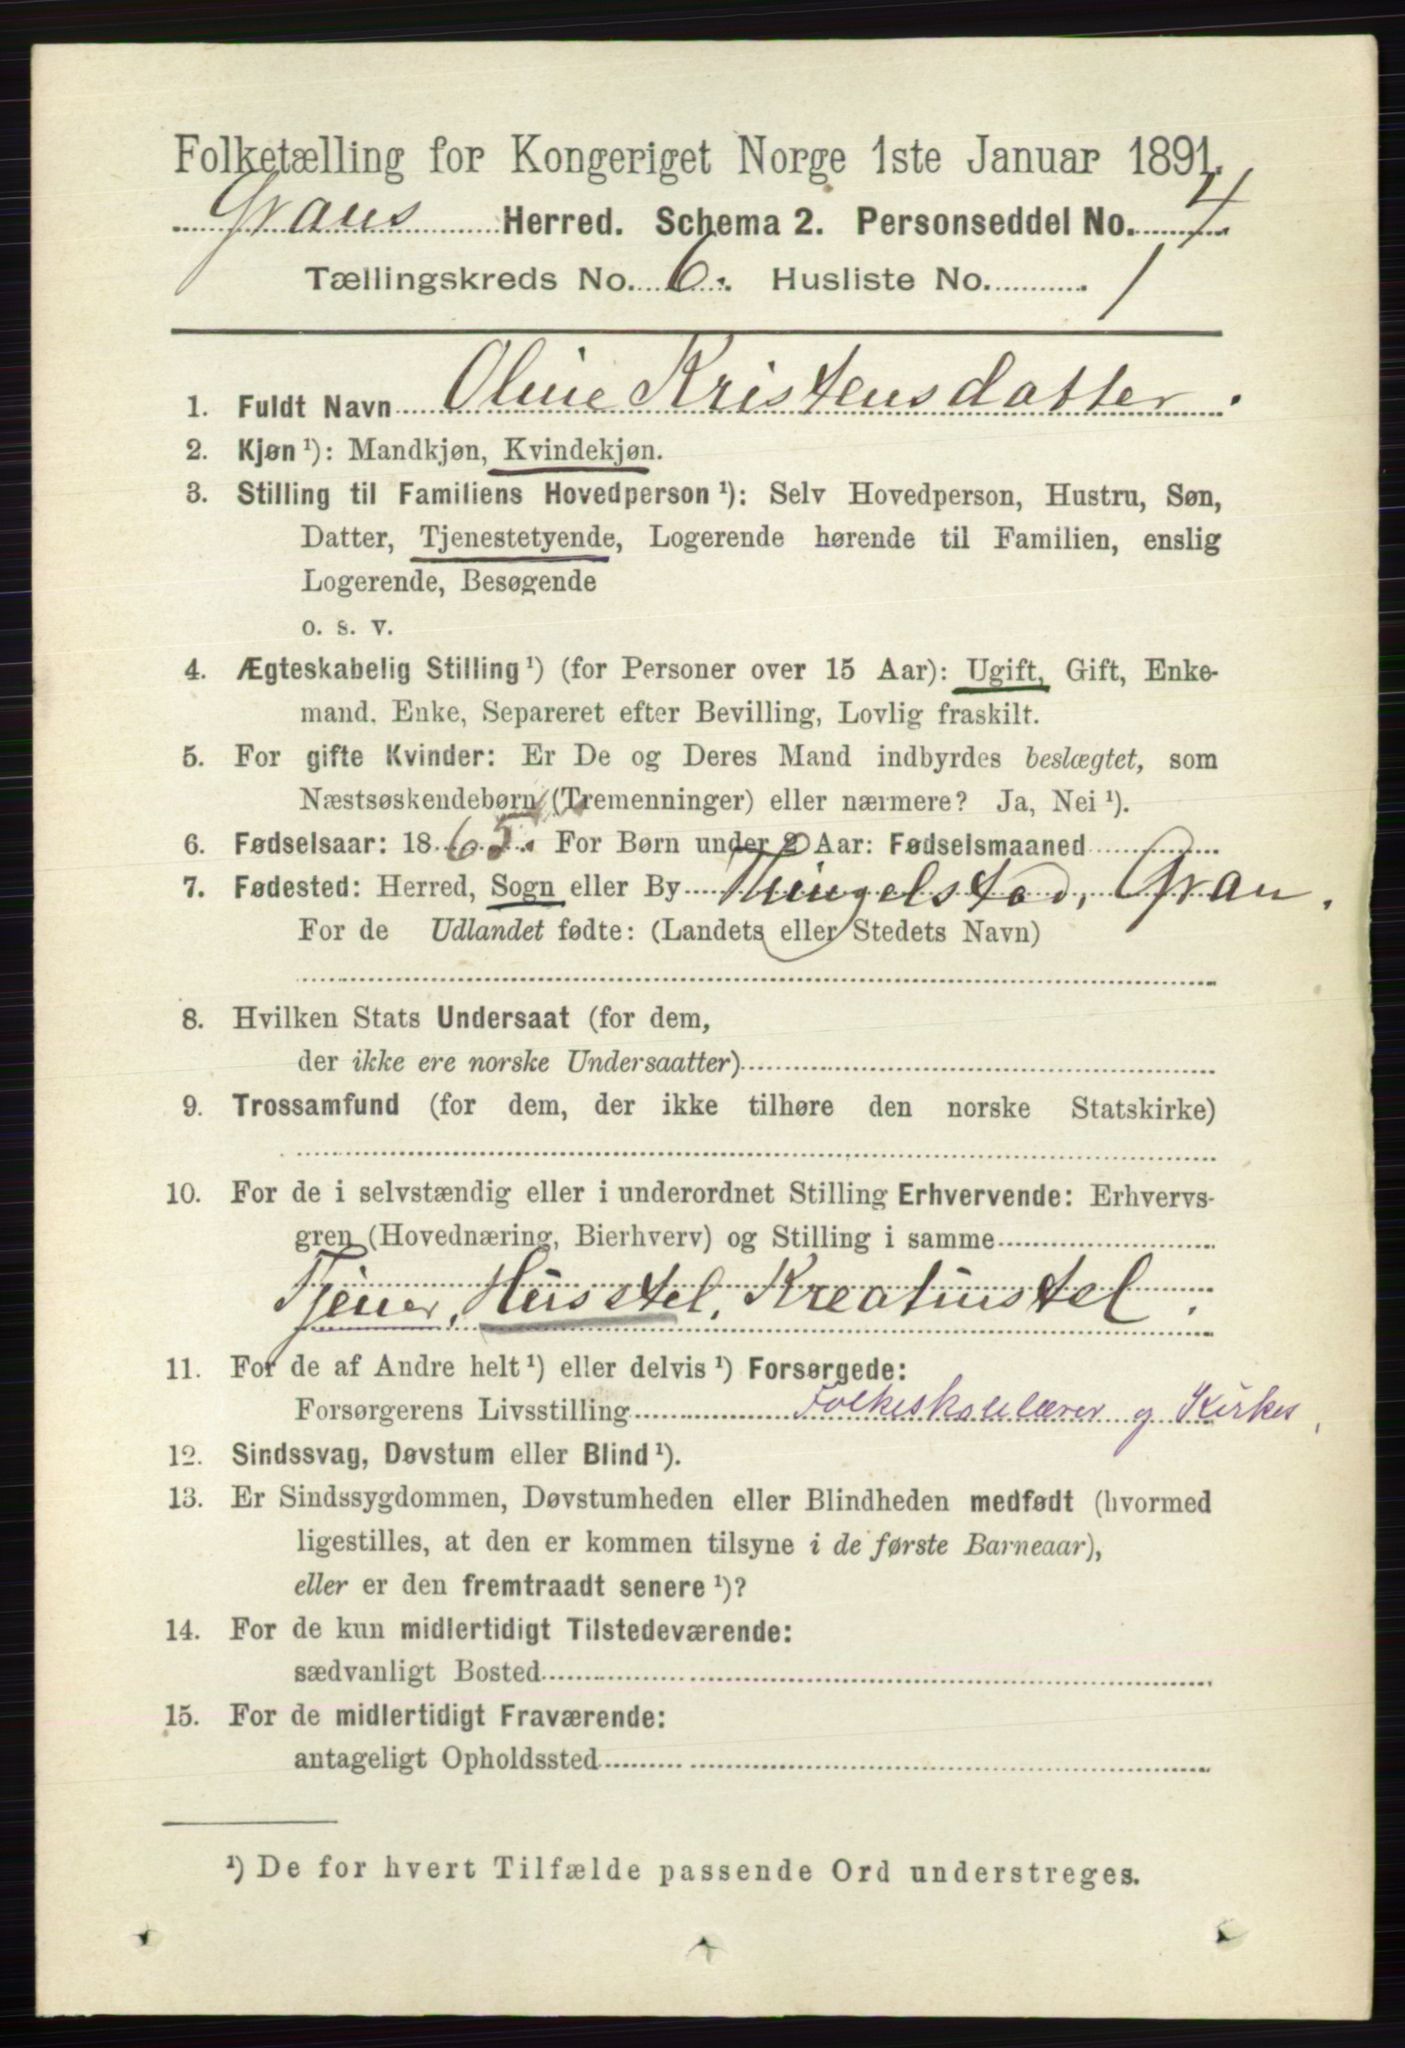 Folketælling for Kongeriget Norge 1ste Januar 1891.
Grans Herred. Schema 2. Personseddel No. 4.
Tællingskreds No. 6. Husliste No. 1.
1. Fuldt Navn Oline Kristensdatter.
2. Kjøn ¹): Mandkjøn, Kvindekjøn.
3. Stilling til Familiens Hovedperson ¹): Selv Hovedperson, Hustru, Søn,
Datter, Tjenestetyende, Logerende hørende til Familien, enslig
Logerende, Besøgende
o. s. v.
4. Ægteskabelig Stilling ¹) (for Personer over 15 Aar): Ugift, Gift, Enke-
mand, Enke, Separeret efter Bevilling, Lovlig fraskilt.
5. For gifte Kvinder: Er De og Deres Mand indbyrdes beslægtet, som
Næstsøskendebørn (Tremenninger) eller nærmere? Ja, Nei ¹).
6. Fødselsaar: 1865. For Børn under 2 Aar: Fødselsmaaned
7. Fødested: Herred, Sogn eller By Thingelstad, Gran.
For de Udlandet fødte: (Landets eller Stedets Navn)
8. Hvilken Stats Undersaat (for dem,
der ikke ere norske Undersaatter)
9. Trossamfund (for dem, der ikke tilhøre den norske Statskirke)
10. For de i selvstændig eller i underordnet Stilling Erhvervende: Erhvervs-
gren (Hovednæring, Bierhverv) og Stilling i samme
Tjener, Husstel, Kreaturstel.
11. For de af Andre helt ¹) eller delvis ¹) Forsørgede:
Forsørgerens Livsstilling Folkeskolelærer og Kirkes.
12. Sindssvag, Døvstum eller Blind ¹).
13. Er Sindssygdommen, Døvstumheden eller Blindheden medfødt (hvormed
ligestilles, at den er kommen tilsyne i de første Barneaar),
eller er den fremtraadt senere ¹)?
14. For de kun midlertidigt Tilstedeværende:
sædvanligt Bosted
15. For de midlertidigt Fraværende:
antageligt Opholdssted
¹) De for hvert Tilfælde passende Ord understreges.